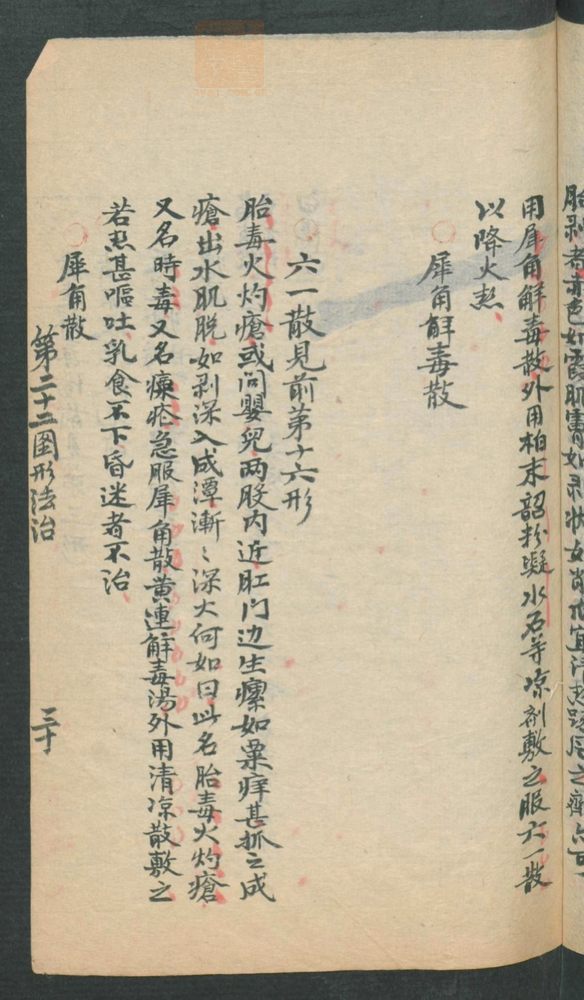 胎剥者赤色如霞肌膏如剥
用犀角解毒散外用柏末韶粉凝水石等凉剂敷之服六一散
以降火热、
犀角解毒散
六一散見前第十六形
胎毒火灼瘡或问嬰児两股内近肛门边生瘰如粟痒甚抓之成
瘡出水肌脱如剥深入成潭漸〻深大何如曰此名胎毒火灼瘡
又名時毒又名瘰疮急服犀角散黄連解毒湯外用清凉散敷之
若热甚嘔吐乳食不下昏迷者不治、
犀角散
第二十二图形法治
三十